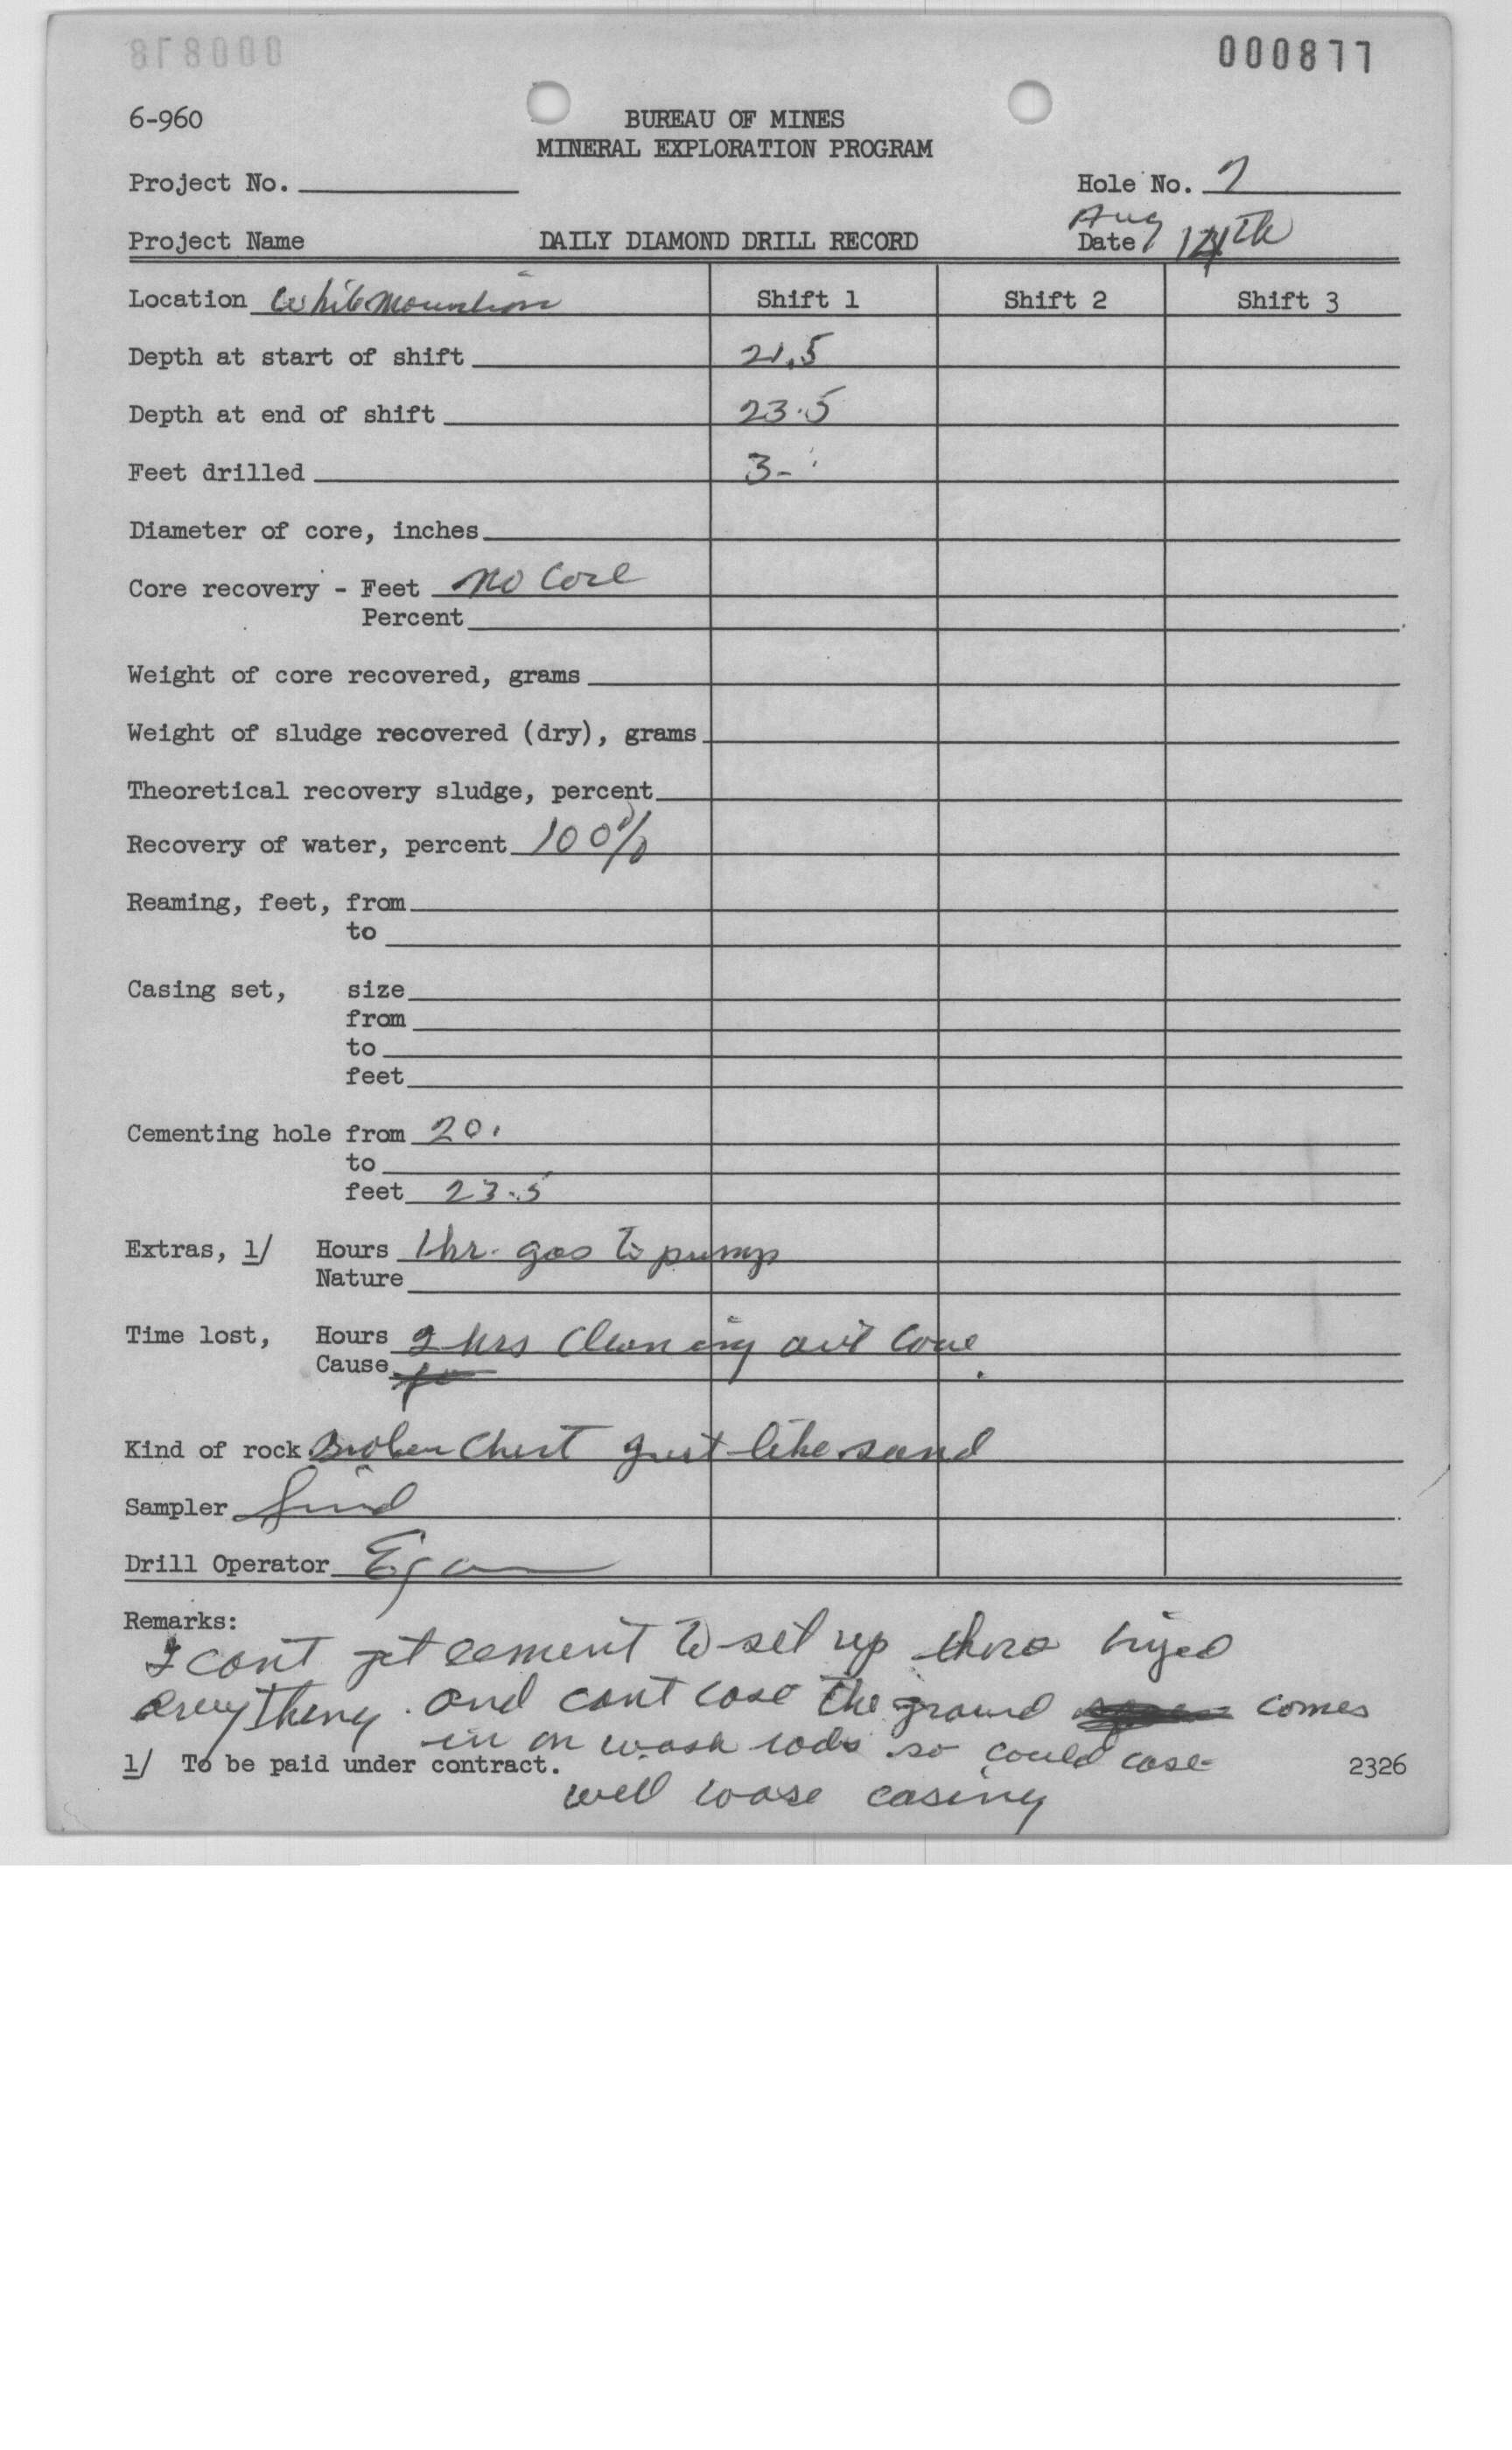 000877
6-960
BUREAU OF MINES
MINERAL EXPLORATION PROGRAM
Project No.
Hole No. 7
Project Name DAILY DIAMOND DRILL RECORD Date Aug 14th
Location White Mountain Shift 1 Shift 2 Shift 3
Depth at start of shift 21.5
Depth at end of shift 23.5
Feet drilled 3-
Diameter of core, inches
Core recovery - Feet no core
Percent
Weight of core recovered, grams
Weight of sludge recovered (dry), grams
Theoretical recovery sludge, percent
Recovery of water, percent 100%
Reaming, feet, from
to
Casing set, size
from
to
feet
Cementing hole from 20.
to
feet 23.5
Extras, 1/ Hours 1 hr. gas to pump
Nature
Time lost, Hours 2 hrs cleaning out
Cause
Kind of rock Broken Chert just like sand
Sampler
Drill Operator Egan
Remarks:
I cant get cement to set up
everything. and cant case the ground comes
in on wash rods so could case
1/ To be paid under contract. 2326
well loose casing